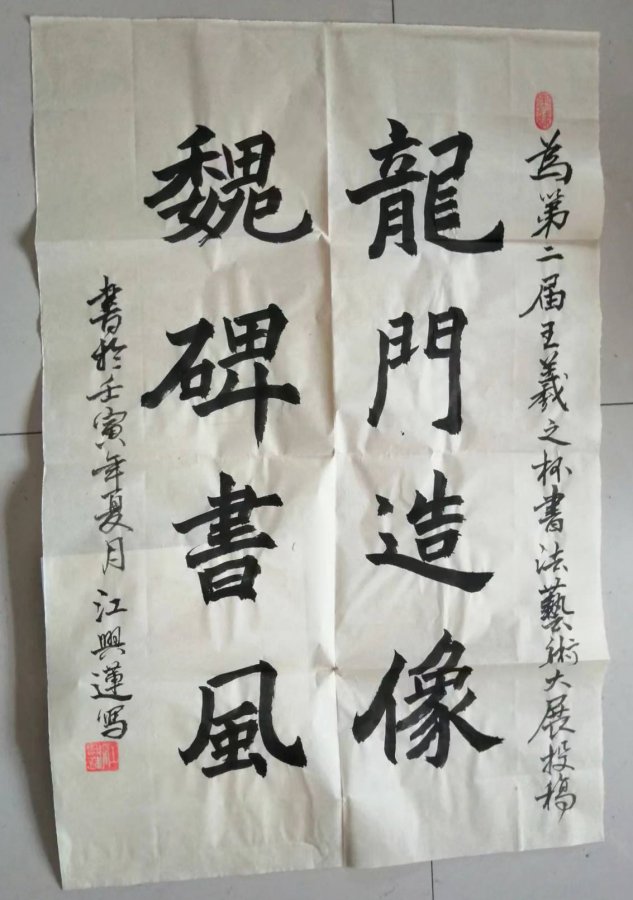 為第二届王羲之杯書法藝術大展投稿
龍門造像
魏碑書風
書於壬寅年夏月 江興蓮寫